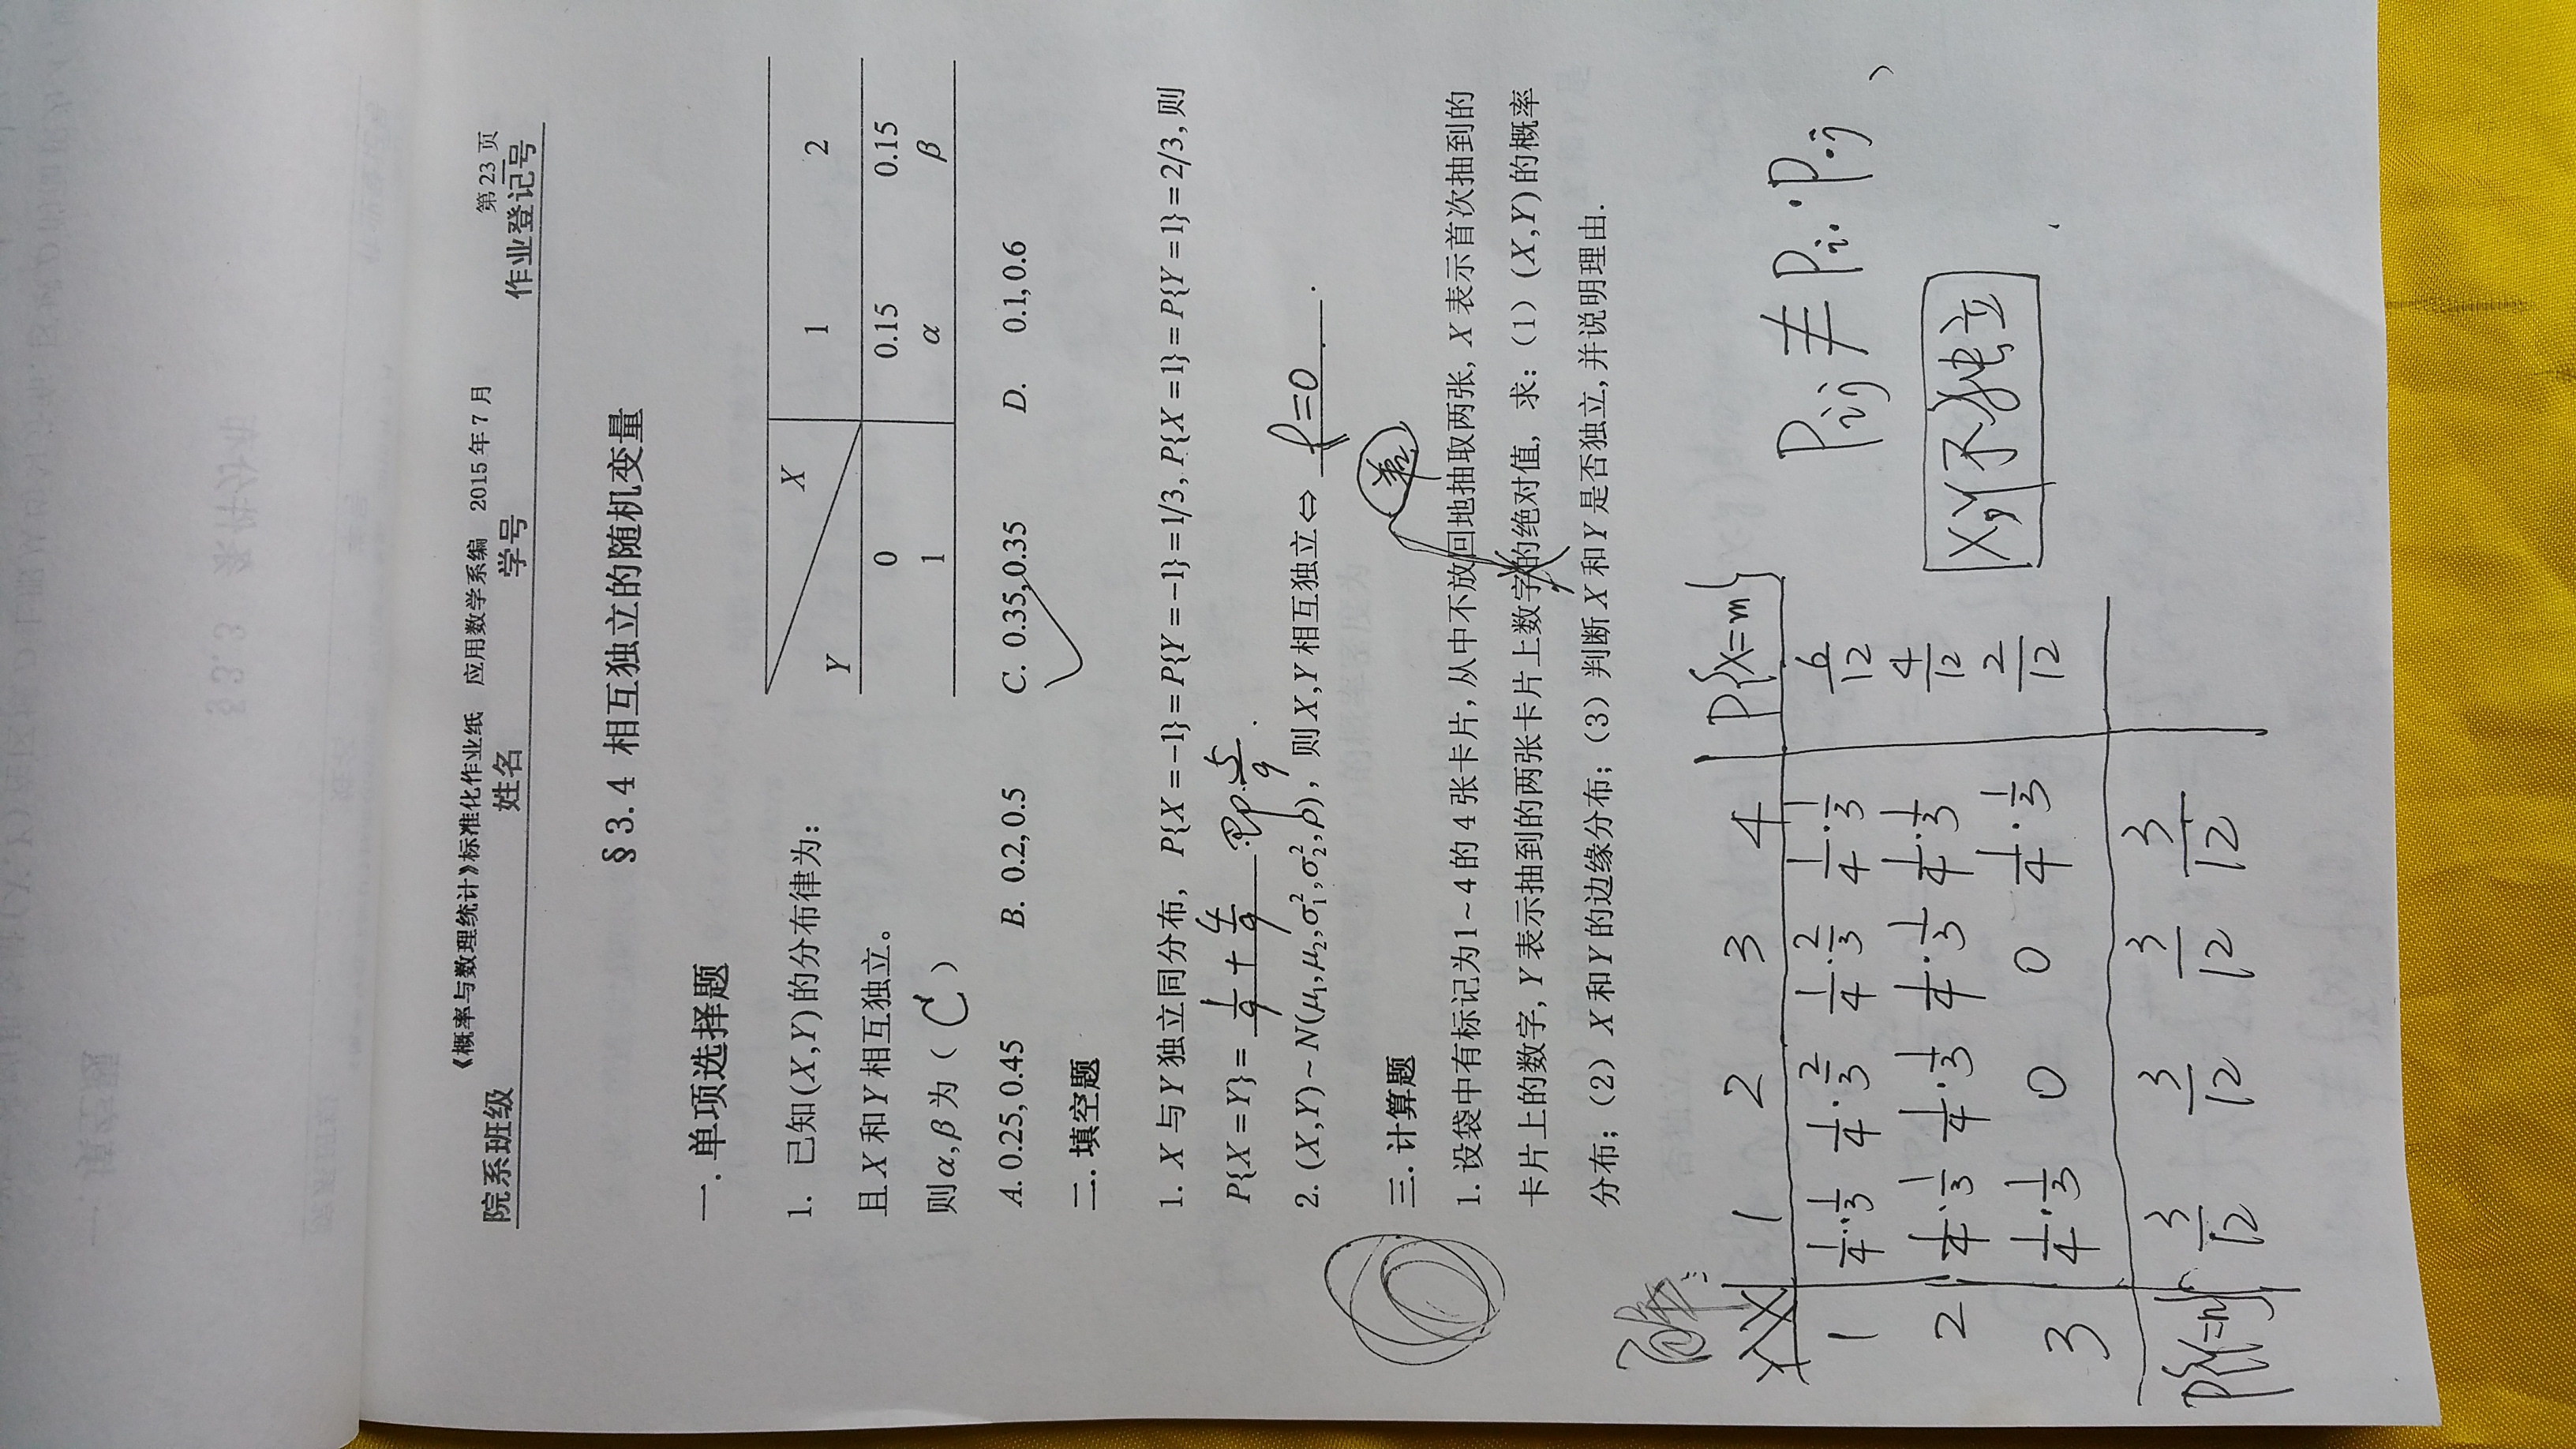 《概率与数理统计》标准化作业纸 应用数学系编 2015年7月 第23页
院系班级 姓名 学号 作业登记号
§3.4 相互独立的随机变量
一.单项选择题
1. 已知(X,Y)的分布律为:
X 1 2
Y
且X和Y相互独立。
0 0.15 0.15
则α,β为( C )
1 α β
A. 0.25,0.45 B. 0.2,0.5 C. 0.35,0.35 D. 0.1,0.6
二.填空题
1. X与Y独立同分布, P{X=−1}=P{Y=−1}=1/3, P{X=1}=P{Y=1}=2/3,则
P{X=Y}= 1/9 + 4/9 即 5/9 .
2. (X,Y)~N(μ₁,μ₂,σ₁²,σ₂²,ρ), 则X,Y相互独立⇔ ρ=0 .
三.计算题
差
1.设袋中有标记为1~4的4张卡片,从中不放回地抽取两张, X表示首次抽到的
卡片上的数字, Y表示抽到的两张卡片上数字的绝对值, 求:(1)(X,Y)的概率
分布;(2)X和Y的边缘分布;(3)判断X和Y是否独立,并说明理由.
解:
Y X 1 2 3 4 P{X=m}
1 1/4·1/3 1/4·2/3 1/4·2/3 1/4·1/3 6/12
2 1/4·1/3 1/4·1/3 1/4·1/3 1/4·1/3 4/12
3 1/4·1/3 0 0 1/4·1/3 2/12
P{Y=n} 3/12 3/12 3/12 3/12
Pij ≢ Pi.·P.j,
X,Y不独立